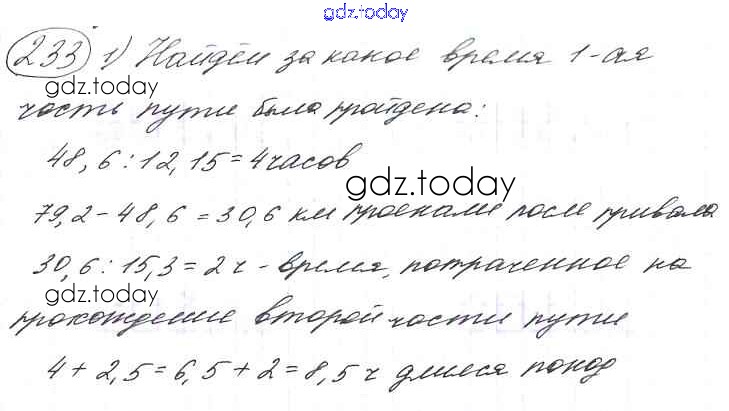 gdz.today
233 1) Найдём за какое время 1-ая
gdz.today
часть пути была пройдена:
48,6 : 12,15 = 4 часов
gdz.today
79,2 - 48,6 = 30,6 км проехали после привала
30,6 : 15,3 = 2 ч - время, потраченное на
gdz.today
прохождение второй части пути
4 + 2,5 = 6,5 + 2 = 8,5 ч длился поход
gdz.today